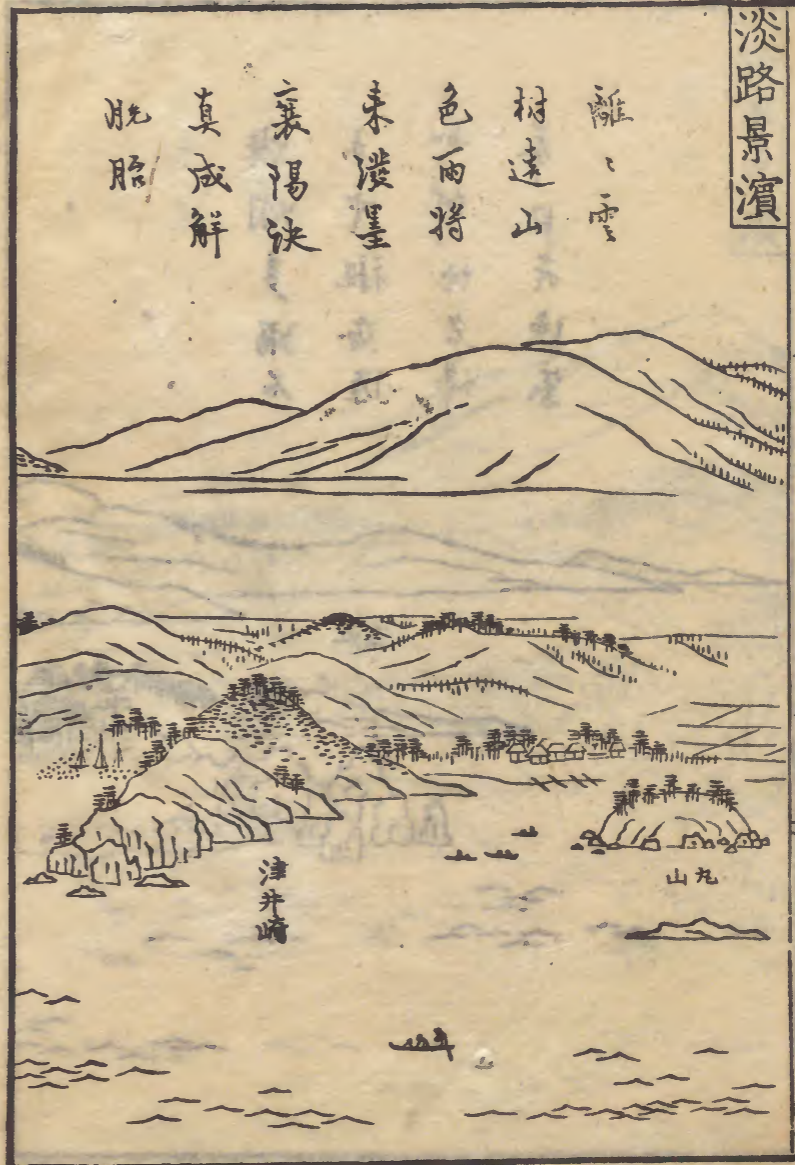 淡路景濱
離〻雲
樹遠山
色雨將
来潑墨
襄陽訣
真成解
脱胎
津井崎
丸山